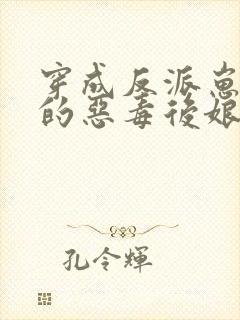 穿成反派崽
的惡毒後娘
孔令輝